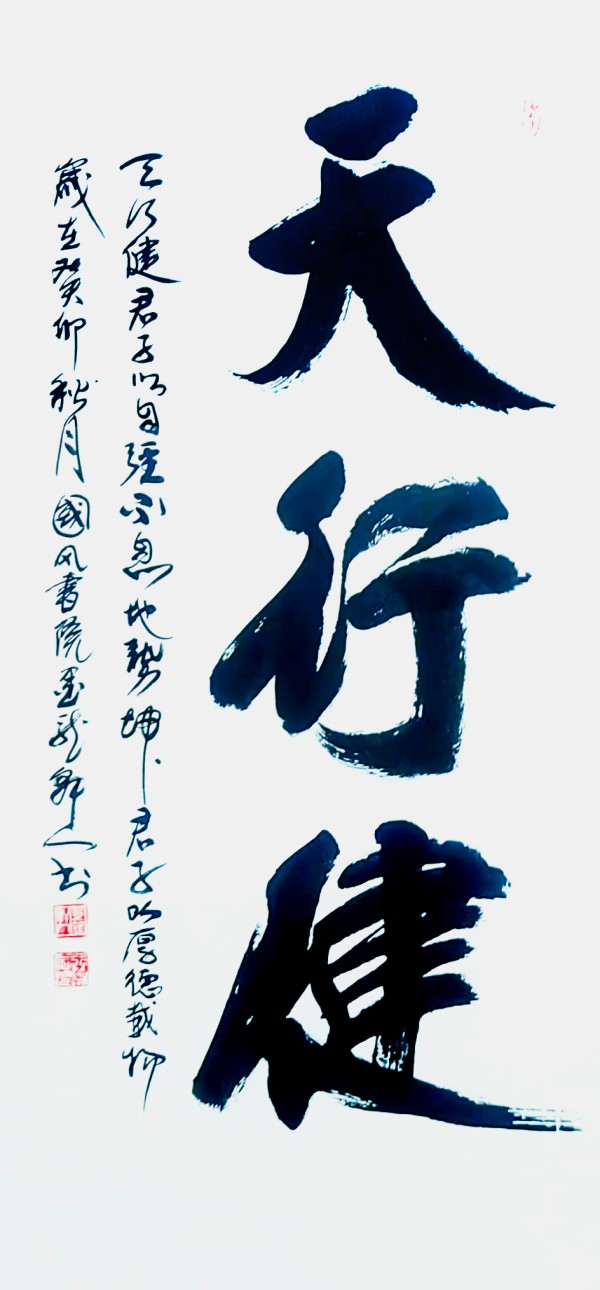 天行健
天行健君子以自强不息地势坤君子以厚德载物
歲在癸卯秋月國风書院墨龙
人书